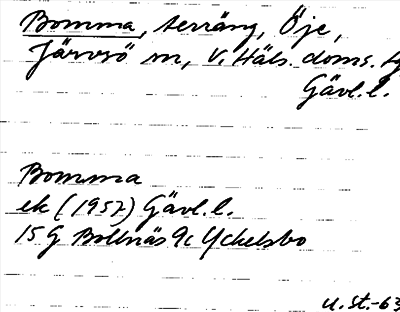 Bomma, terräng, Öje,
Järvsö sn, V. Häls. doms.
Gävl. l.
Bomma
ek (1957) Gävl. l.
15 G Bollnäs 9c Yckelsbo
U. St. -63